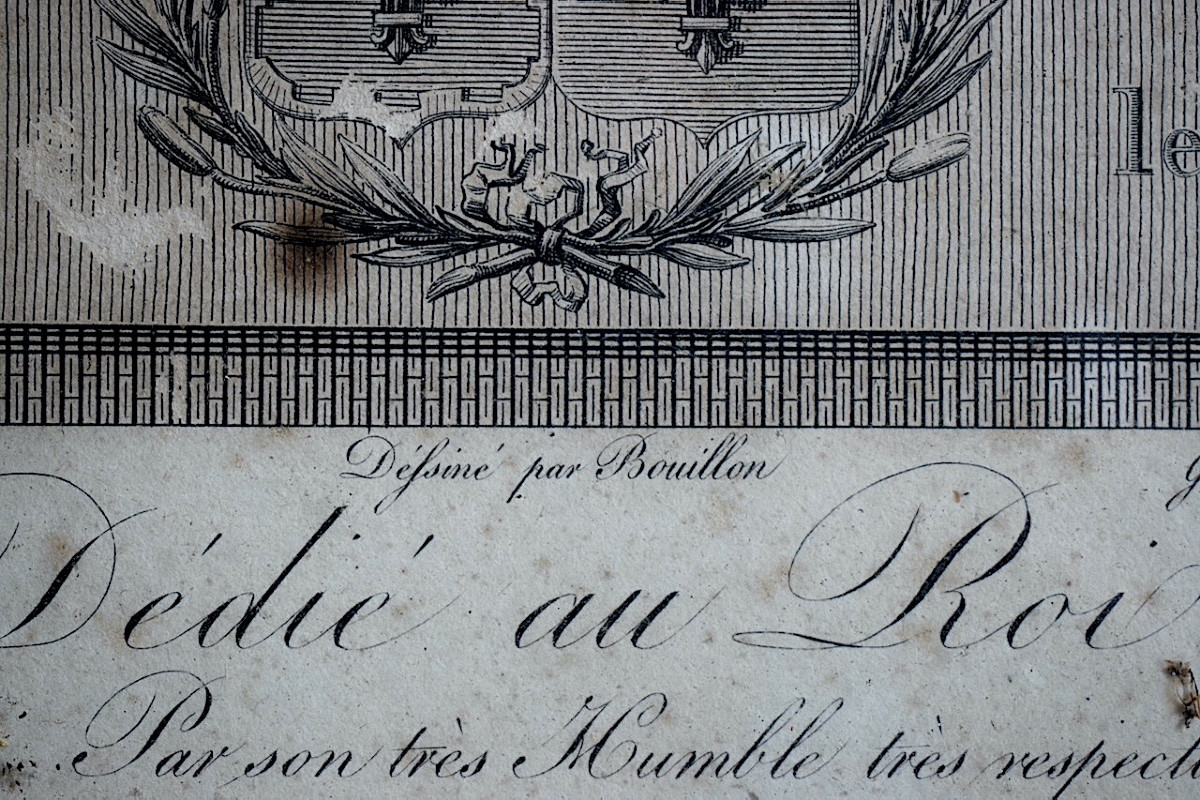 le
Déſsiné par Bouillon
Dédié au Roi
Par son très Humble très respect